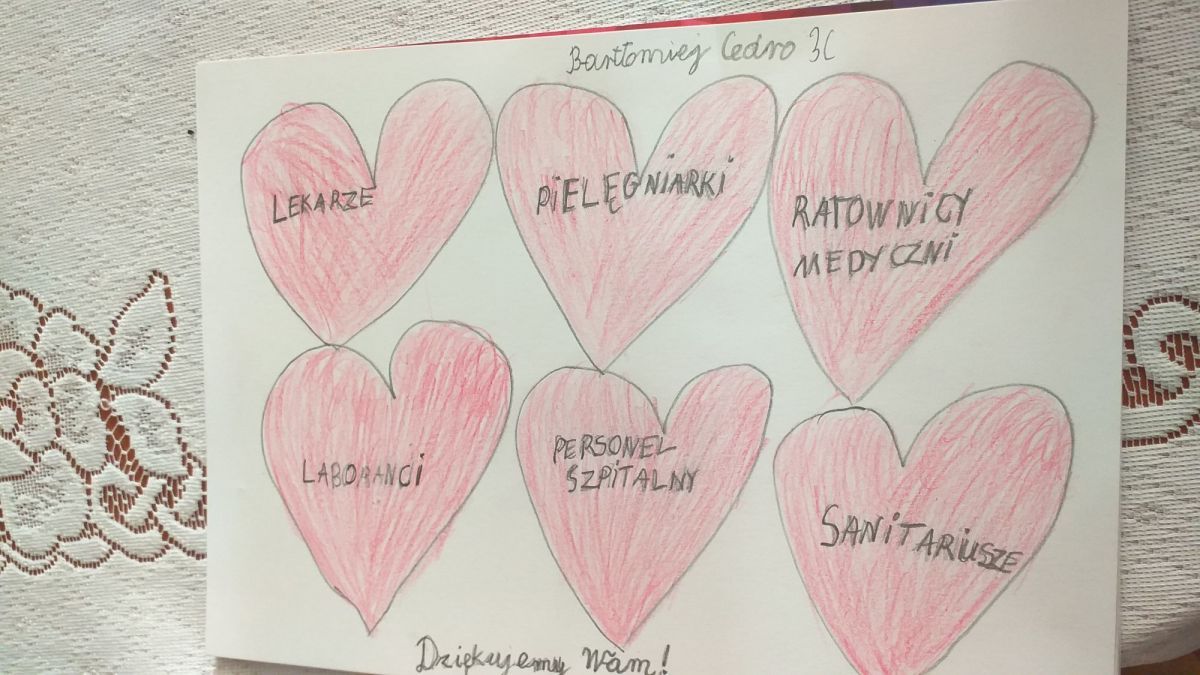 Bartłomiej Cedro 3C
LEKARZE
PiELĘGNiARKi
RATOWNiCY
MEDYCZNi
LABORANCi
PERSONEL
SZPiTALNY
SANiTARiUSZE
Dziękujemy Wam!